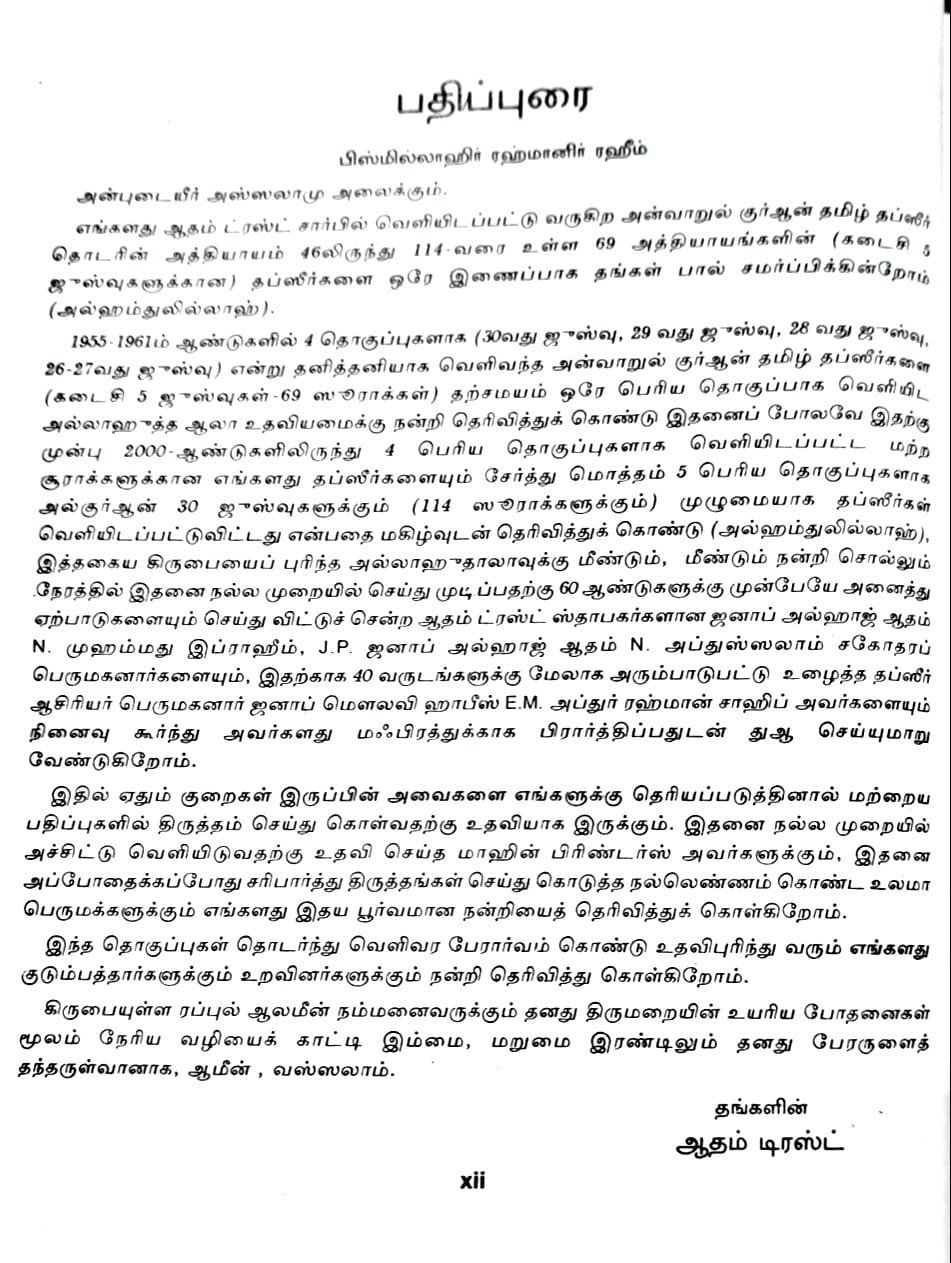 பதிப்புரை
பிஸ்மில்லாஹிர் ரஹ்மானிர் ரஹீம்
அன்புடையீர் அஸ்ஸலாமு அலைக்கும்.
எங்களது ஆதம் ட்ரஸ்ட் சார்பில் வெளியிடப்பட்டு வருகிற அன்வாறுல் குர்ஆன் தமிழ் தப்ஸீர்
தொடரின் அத்தியாயம் 46லிருந்து 114-வரை உள்ள 69 அத்தியாயங்களின் (கடைசி 5
ஜுஸ்வுகளுக்கான) தப்ஸீர்களை ஒரே இணைப்பாக தங்கள் பால் சமர்ப்பிக்கின்றோம்
(அல்ஹம்துலில்லாஹ்).
1955-1961ம் ஆண்டுகளில் 4 தொகுப்புகளாக (30வது ஜுஸ்வு, 29 வது ஜுஸ்வு, 28 வது ஜுஸ்வு,
26-27வது ஜுஸ்வு) என்று தனித்தனியாக வெளிவந்த அன்வாறுல் குர்ஆன் தமிழ் தப்ஸீர்களை
(கடைசி 5 ஜுஸ்வுகள்-69 ஸூராக்கள்) தற்சமயம் ஒரே பெரிய தொகுப்பாக வெளியிட
அல்லாஹுத்த ஆலா உதவியமைக்கு நன்றி தெரிவித்துக் கொண்டு இதனைப் போலவே இதற்கு
முன்பு 2000-ஆண்டுகளிலிருந்து 4 பெரிய தொகுப்புகளாக வெளியிடப்பட்ட மற்ற
சூராக்களுக்கான எங்களது தப்ஸீர்களையும் சேர்த்து மொத்தம் 5 பெரிய தொகுப்புகளாக
அல்குர்ஆன் 30 ஜுஸ்வுகளுக்கும் (114 ஸூராக்களுக்கும்) முழுமையாக தப்ஸீர்கள்
வெளியிடப்பட்டுவிட்டது என்பதை மகிழ்வுடன் தெரிவித்துக் கொண்டு (அல்ஹம்துலில்லாஹ்),
இத்தகைய கிருபையைப் புரிந்த அல்லாஹுதாலாவுக்கு மீண்டும், மீண்டும் நன்றி சொல்லும்
நேரத்தில் இதனை நல்ல முறையில் செய்து முடிப்பதற்கு 60 ஆண்டுகளுக்கு முன்பேயே அனைத்து
ஏற்பாடுகளையும் செய்து விட்டுச் சென்ற ஆதம் ட்ரஸ்ட் ஸ்தாபகர்களான ஜனாப் அல்ஹாஜ் ஆதம்
N. முஹம்மது இப்ராஹீம், J.P. ஜனாப் அல்ஹாஜ் ஆதம் N. அப்துஸ்ஸலாம் சகோதரப்
பெருமகனார்களையும், இதற்காக 40 வருடங்களுக்கு மேலாக அரும்பாடுபட்டு உழைத்த தப்ஸீர்
ஆசிரியர் பெருமகனார் ஜனாப் மௌலவி ஹாபீஸ் E.M. அப்துர் ரஹ்மான் சாஹிப் அவர்களையும்
நினைவு கூர்ந்து அவர்களது மஃபிரத்துக்காக பிரார்த்திப்பதுடன் துஆ செய்யுமாறு
வேண்டுகிறோம்.
இதில் ஏதும் குறைகள் இருப்பின் அவைகளை எங்களுக்கு தெரியப்படுத்தினால் மற்றைய
பதிப்புகளில் திருத்தம் செய்து கொள்வதற்கு உதவியாக இருக்கும். இதனை நல்ல முறையில்
அச்சிட்டு வெளியிடுவதற்கு உதவி செய்த மாஹின் பிரிண்டர்ஸ் அவர்களுக்கும், இதனை
அப்போதைக்கப்போது சரிபார்த்து திருத்தங்கள் செய்து கொடுத்த நல்லெண்ணம் கொண்ட உலமா
பெருமக்களுக்கும் எங்களது இதய பூர்வமான நன்றியைத் தெரிவித்துக் கொள்கிறோம்.
இந்த தொகுப்புகள் தொடர்ந்து வெளிவர பேரார்வம் கொண்டு உதவிபுரிந்து வரும் எங்களது
குடும்பத்தார்களுக்கும் உறவினர்களுக்கும் நன்றி தெரிவித்து கொள்கிறோம்.
கிருபையுள்ள ரப்புல் ஆலமீன் நம்மனைவருக்கும் தனது திருமறையின் உயரிய போதனைகள்
மூலம் நேரிய வழியைக் காட்டி இம்மை, மறுமை இரண்டிலும் தனது பேரருளைத்
தந்தருள்வானாக, ஆமீன் , வஸ்ஸலாம்.
தங்களின்
ஆதம் டிரஸ்ட்
xii